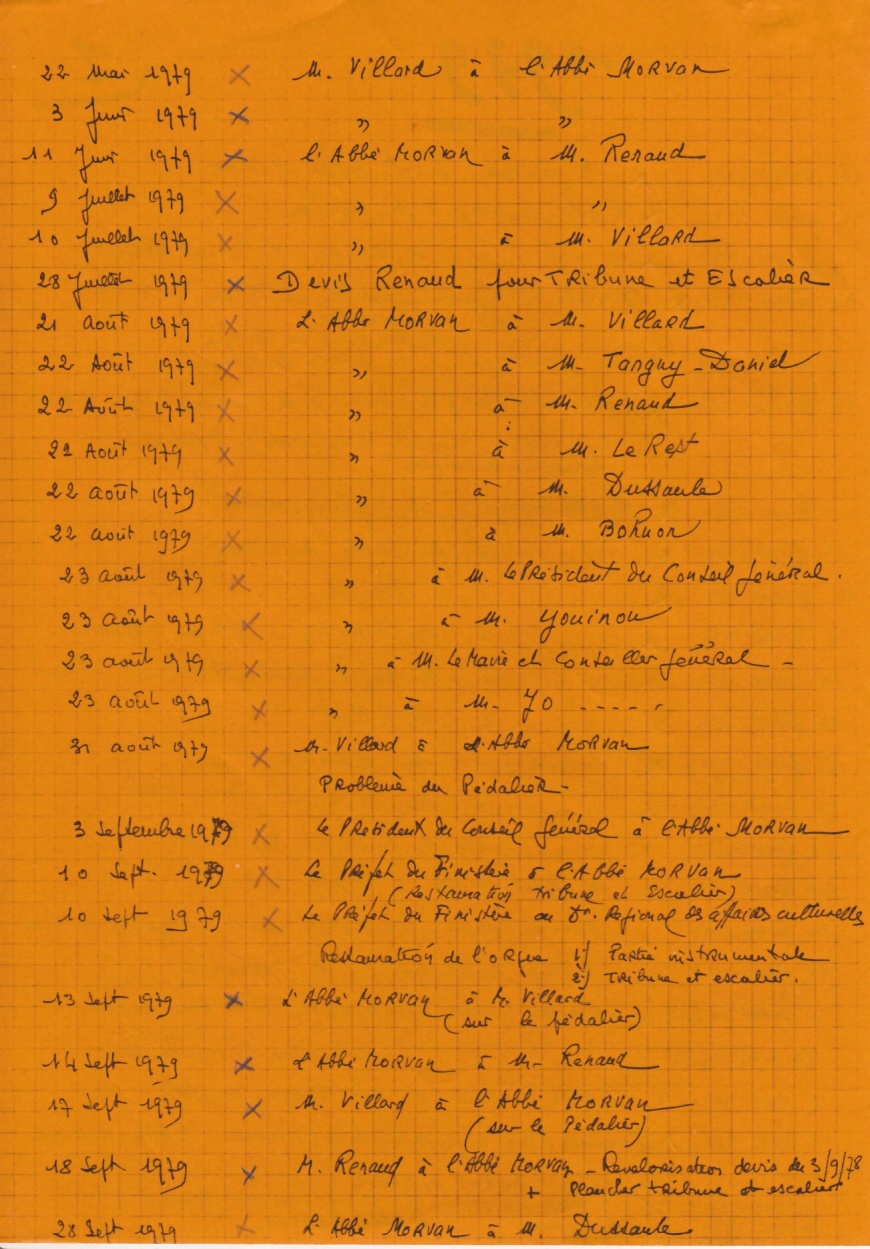 22 Mai 1979 × M. Villard à l'Abbé MORVAN
3 Juin 1979 × " "
11 Juin 1979 × l'Abbé MORVAN à M. Renaud
9 Juillet 1979 × " "
10 Juillet 1979 × " à M. Villard
28 Juillet 1979 × Devis Renaud pour Tribune et Escalier
21 août 1979 × L'Abbé MORVAN à M. Villard
22 Août 1979 × " à M. Tanguy-Daniel
22 Août 1979 × " à M. Renaud
22 Août 1979 × " à M. Le Rest
22 août 1979 × " à M. Dussaule
22 août 1979 × " à M.
23 août 1979 × " à M. le Président du Conseil général.
23 août 1979 × " à M. Youinou
23 août 1979 × " à M. Le Maire et Conseiller général -
23 août 1979 × " à M. Yo -----
31 août 1979 × M. Villard à l'Abbé MORVAN
Problème du Pédalier -
3 Septembre 1979 × Le Président du Conseil général à l'Abbé MORVAN
10 Sept. 1979 × Le Préfet du Finistère à l'Abbé MORVAN
(Restauration Tribune et Escalier)
10 Sept 1979 × Le Préfet du Finistère au Dr. Régional des affaires culturelles
Restauration de l'orgue 1) Partie instrumentale
2) Tribune et escalier.
13 Sept 1979 × L'Abbé MORVAN à M. Villard
(sur le pédalier)
14 Sept 1979 × L'Abbé MORVAN à M. Renaud
17 Sept 1979 × M. Villard à l'Abbé MORVAN
(sur le Pédalier)
18 Sept 1979 × M. Renaud à l'Abbé MORVAN - Revalorisation devis du 3/9/78
+ Plancher tribune et escalier
28 Sept 1979 × L'Abbé MORVAN à M. Dussaule